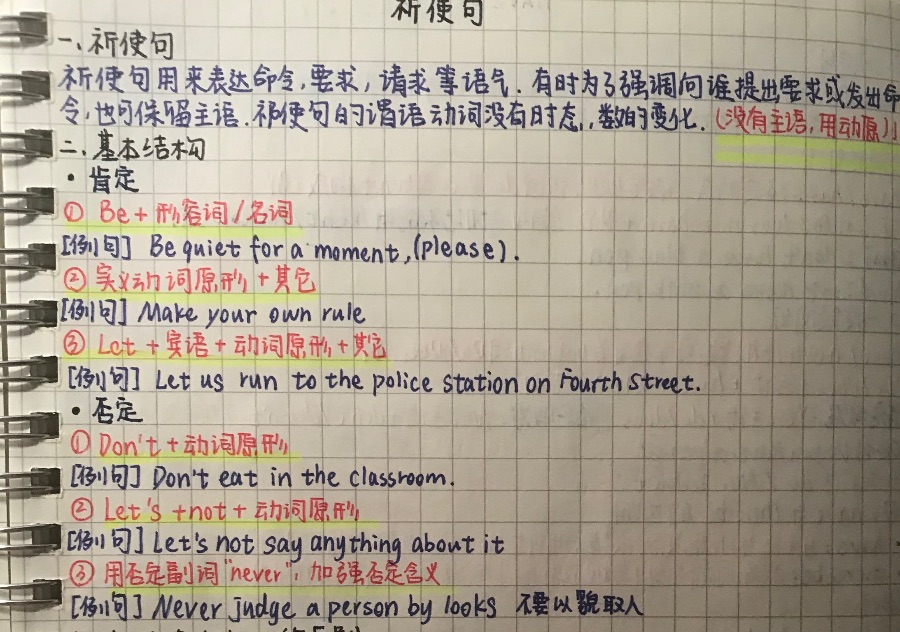 祈使句
一、祈使句
祈使句用来表达命令,要求,请求等语气.有时为了强调向谁提出要求或发出命
令,也可保留主语.祈使句的谓语动词没有时态,数的变化.(没有主语,用动原)
二、基本结构
• 肯定
① Be + 形容词/名词
[例句] Be quiet for a moment,(please).
② 实义动词原形 + 其它
[例句] Make your own rule
③ Let + 宾语 + 动词原形 + 其它
[例句] Let us run to the police station on Fourth Street.
• 否定
① Don't + 动词原形
[例句] Don't eat in the classroom.
② Let's + not + 动词原形
[例句] Let's not say anything about it
③ 用否定副词"never",加强否定含义
[例句] Never judge a person by looks 不要以貌取人